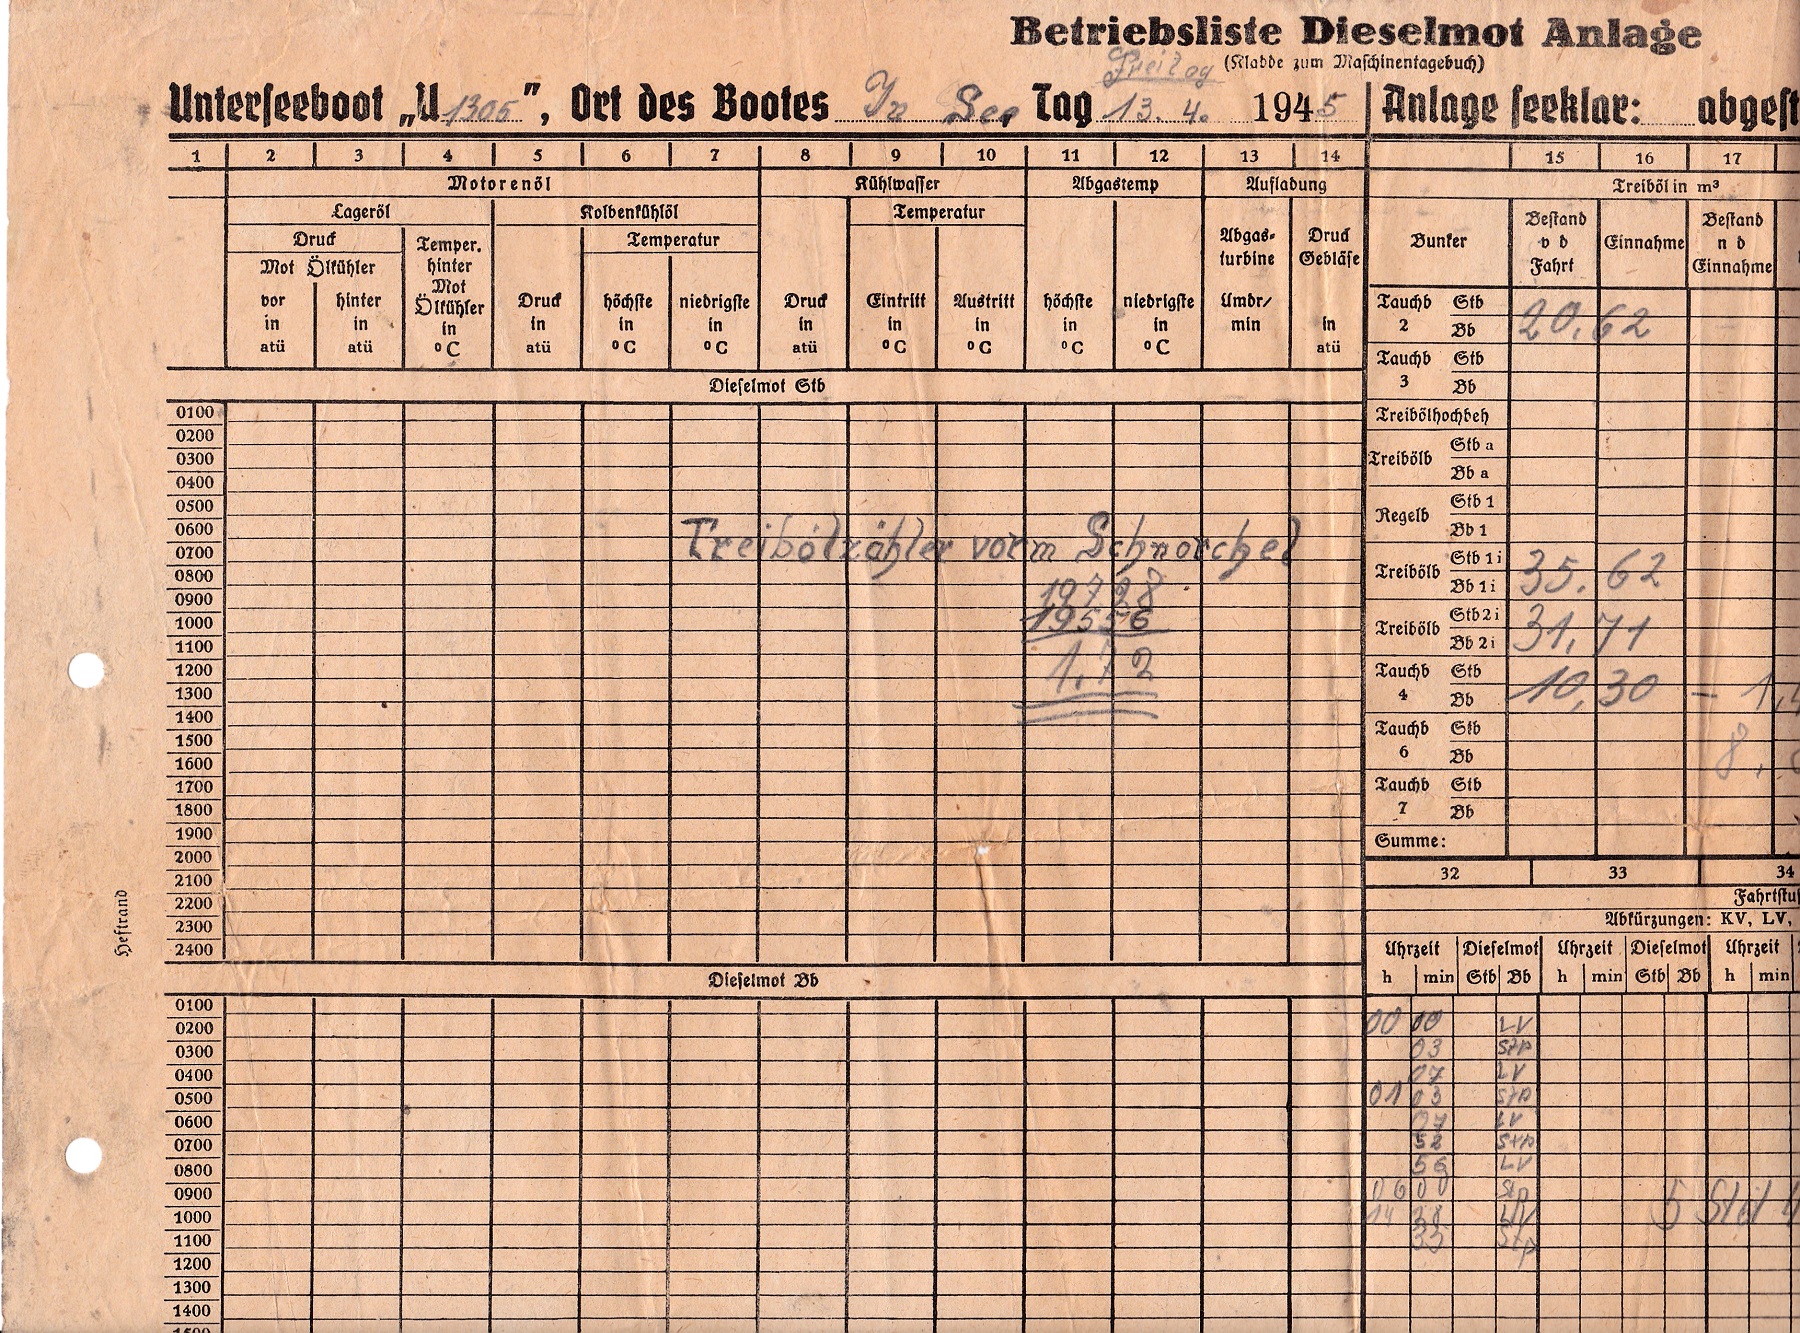 Betriebsliste Dieselmot Anlage
Freitag (Kladde zum Maschinentagebuch)
Unterseeboot „U 1305", Ort des Bootes In See, Tag 13. 4. 1945 Anlage seeklar: abgest
1 2 3 4 5 6 7 8 9 10 11 12 13 14 15 16 17
Motorenöl Kühlwasser Abgastemp Aufladung Treiböl in m³
Lageröl Kolbenkühlöl Temperatur
Druck Temper. hinter Mot Ölkühler in °C Temperatur
Mot Ölkühler
vor in atü
hinter in atü
Druck in atü
höchste in °C
niedrigste in °C
Druck in atü
Eintritt in °C
Austritt in °C
höchste in °C
niedrigste in °C
Abgas-turbine Umdr/min
Druck Gebläse in atü
Bunker
Bestand v d Fahrt
Einnahme
Bestand n d Einnahme
Dieselmot Stb
0100
0200
0300
0400
0500
0600
0700
0800
0900
1000
1100
1200
1300
1400
1500
1600
1700
1800
1900
2000
2100
2200
2300
2400
Treibölzähler vorm Schnorchel
19728
19556
1,72
Dieselmot Bb
0100
0200
0300
0400
0500
0600
0700
0800
0900
1000
1100
1200
1300
1400
1500
Tauchb 2 Stb Bb 20,62
Tauchb 3 Stb Bb
Treibölhochbeh
Treibölb Stb a Bb a
Regelb Stb 1 Bb 1
Treibölb Stb 1 i Bb 1 i 35.62
Treibölb Stb 2 i Bb 2 i 31,71
Tauchb 4 Stb Bb 10,30 – 1,
Tauchb 6 Stb Bb 8,
Tauchb 7 Stb Bb
Summe:
32 33 34
Fahrtstuf
Abkürzungen: KV, LV,
Uhrzeit Dieselmot Uhrzeit Dieselmot Uhrzeit
h min Stb Bb h min Stb Bb h min
00 00 LV
03 Stp
07 LV
01 03 Stp
07 LV
52 Stp
56 LV
06 00 Stp
14 LV
33 Stp
Heftrand